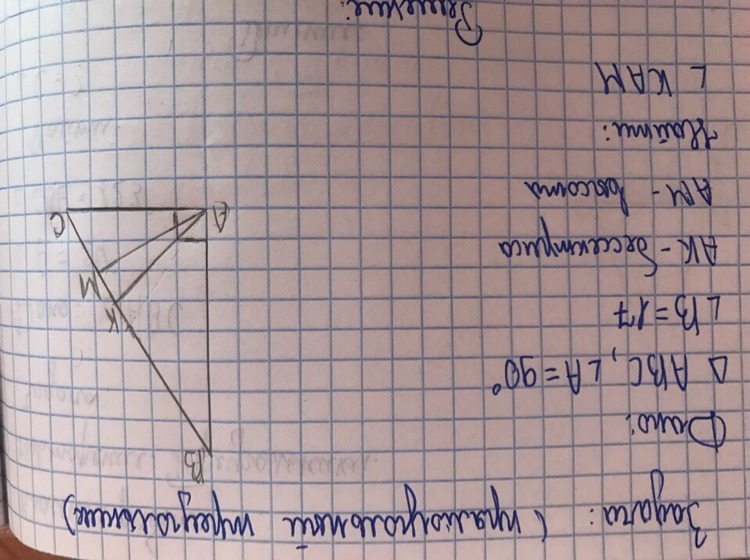 Задача: (прямоугольный треугольник)
Дано:
△ ABC, ∠A = 90°
∠B = 17
AK - биссектриса
AM - высота
Найти:
∠ KAM
Решение:
B
K
M
A
C